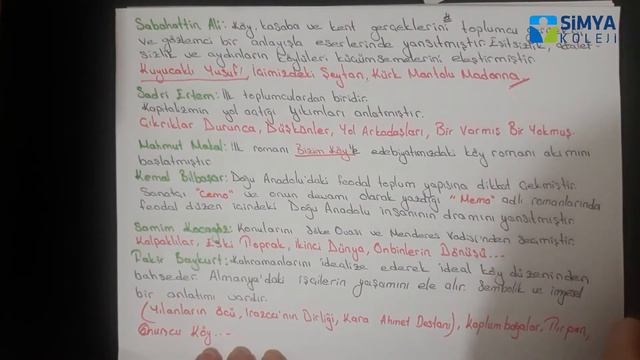 Sabahattin Ali: Köy, kasaba ve kent gerçeklerini toplumcu
ve gözlemci bir anlayışla eserlerinde yansıtmıştır. Eşitsizlik, adalet-
sizlik ve aydınların köylüleri küçümsemelerini eleştirmiştir.
Kuyucaklı Yusuf, İçimizdeki Şeytan, Kürk Mantolu Madonna
Sadri Ertem: İlk toplumculardan biridir.
Kapitalizmin yol açtığı yıkımları anlatmıştır.
Çıkrıklar Durunca, Düşkünler, Yol Arkadaşları, Bir Varmış Bir Yokmuş.
Mahmut Makal: İlk romanı Bizim Köy'le edebiyatımızdaki köy romanı akımını
başlatmıştır
Kemal Bilbaşar: Doğu Anadolu'daki feodal toplum yapısına dikkat çekmiştir.
Sanatçı "Cemo" ve onun devamı olarak yazdığı "Memo" adlı romanlarında
feodal düzen içindeki Doğu Anadolu insanının dramını yansıtmıştır.
Samim Kocagöz: Konularını Söke Ovası ve Menderes Vadisi'nden seçmiştir.
Kalpaklılar, Eski Toprak, İkinci Dünya, Onbinlerin Dönüşü...
Fakir Baykurt: Kahramanlarını idealize ederek ideal köy düzeninden
bahseder. Almanya'daki işçilerin yaşamını ele alır. Sembolik ve imgesel
bir anlatımı vardır.
(Yılanların Öcü, Irazca'nın Dirliği, Kara Ahmet Destanı), Kaplumbağalar, Tırpan,
Onuncu Köy...
SİMYA
KOLEJİ